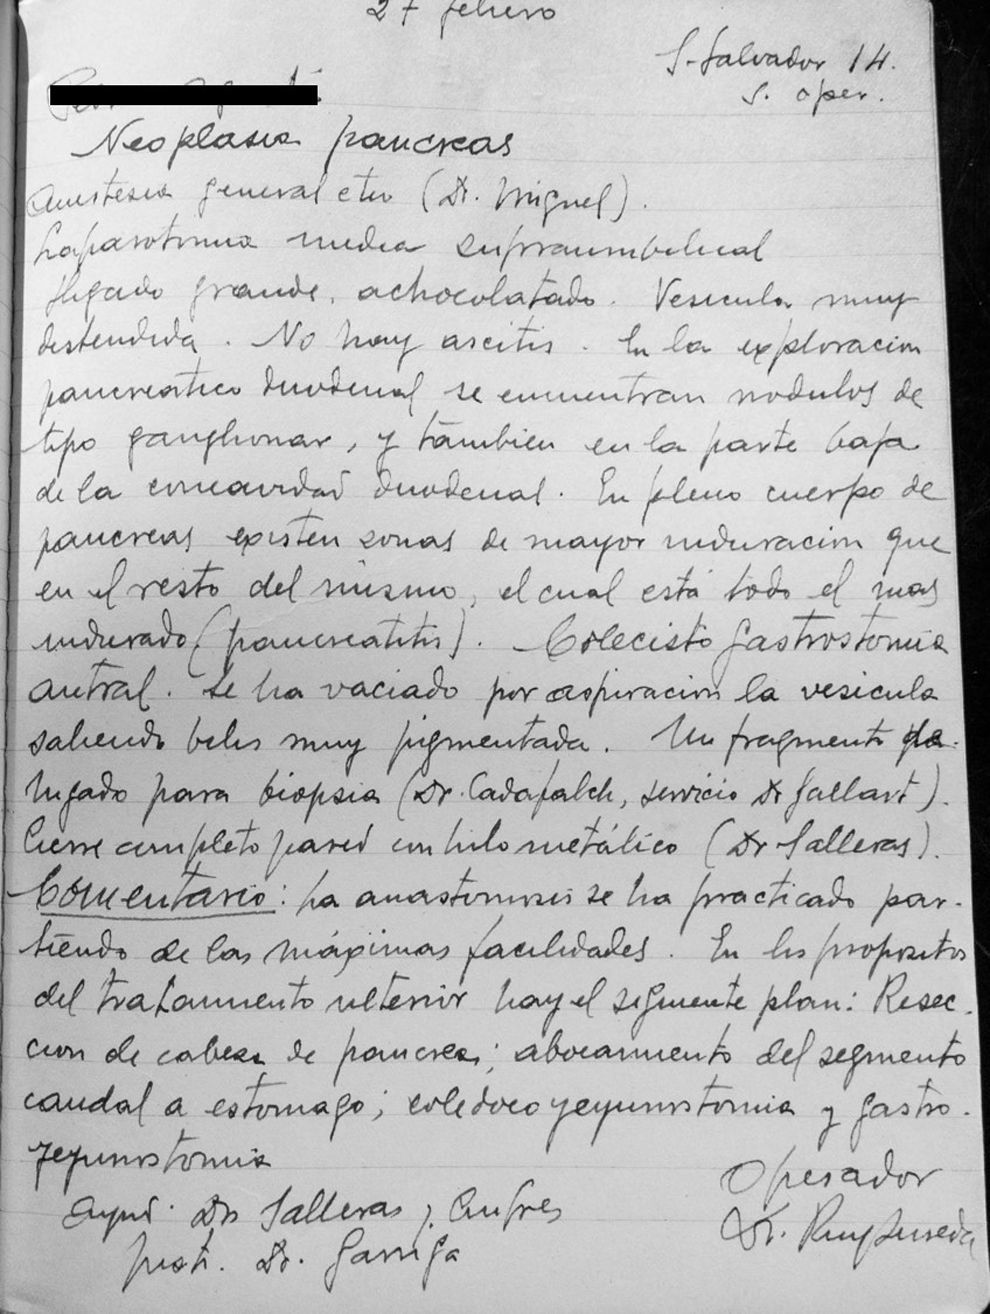 27 febrero
S. Salvador 14.
S. oper.
Neoplasia pancreas
Anestesia general eter (Dr. Miguel).
Laparotomia media supraumbelical
Higado grande, achocolatado. Vesicula muy
distendida. No hay ascitis. En la exploracion
pancreatico duodenal se encuentran nodulos de
tipo ganglionar, y tambien en la parte baja
de la concavidad duodenal. En pleno cuerpo de
pancreas existen zonas de mayor induracion que
en el resto del mismo, el cual está todo el mas
indurado (pancreatitis). Colecisto gastrostomia
antral. Se ha vaciado por aspiracion la vesicula
saliendo bilis muy pigmentada. Un fragmento de
higado para biopsia (Dr. Cadafalch, servicio Dr Gallart).
Cierre completo pared con hilo metálico (Dr Salleras).
Comentario: La anastomosis se ha practicado par-
tiendo de las máximas facilidades. En los propositos
del tratamiento ulterior hay el siguiente plan: Resec-
cion de cabeza de pancreas; abocamiento del segmento
caudal a estomago; coledoco yeyunostomia y gastro-
yeyunostomia
Operador
Ayud. Drs Salleras y
Dr.
Dr. Garriga